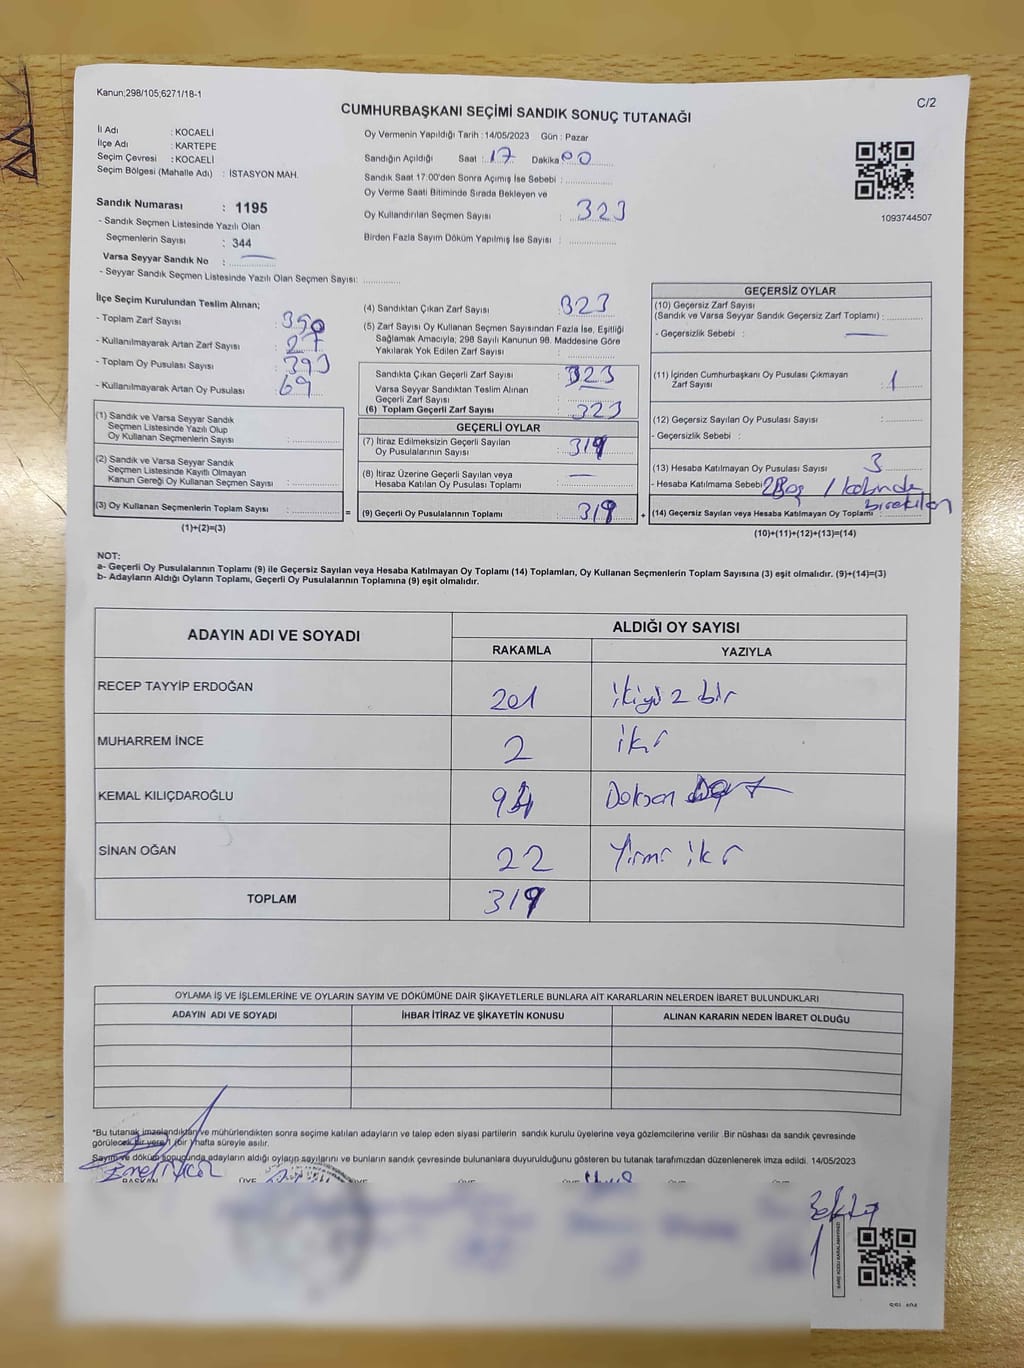 Kanun;298/105;6271/18-1
C/2
CUMHURBAŞKANI SEÇİMİ SANDIK SONUÇ TUTANAĞI
İl Adı : KOCAELİ
İlçe Adı : KARTEPE
Seçim Çevresi : KOCAELİ
Seçim Bölgesi (Mahalle Adı) : İSTASYON MAH.
Sandık Numarası : 1195
- Sandık Seçmen Listesinde Yazılı Olan
Seçmenlerin Sayısı : 344
Varsa Seyyar Sandık No :
- Seyyar Sandık Seçmen Listesinde Yazılı Olan Seçmen Sayısı:
Oy Vermenin Yapıldığı Tarih : 14/05/2023 Gün : Pazar
Sandığın Açıldığı Saat : 17 Dakika 00
Sandık Saat 17:00'den Sonra Açımış İse Sebebi :
Oy Verme Saati Bitiminde Sırada Bekleyen ve
Oy Kullandırılan Seçmen Sayısı : 323
Birden Fazla Sayım Döküm Yapılmış İse Sayısı :
1093744507
İlçe Seçim Kurulundan Teslim Alınan;
- Toplam Zarf Sayısı : 350
- Kullanılmayarak Artan Zarf Sayısı : 27
- Toplam Oy Pusulası Sayısı : 393
- Kullanılmayarak Artan Oy Pusulası : 69
(1) Sandık ve Varsa Seyyar Sandık
Seçmen Listesinde Yazılı Olup
Oy Kullanan Seçmenlerin Sayısı :
(2) Sandık ve Varsa Seyyar Sandık
Seçmen Listesinde Kayıtlı Olmayan
Kanun Gereği Oy Kullanan Seçmen Sayısı :
(3) Oy Kullanan Seçmenlerin Toplam Sayısı : =
(1)+(2)=(3)
(4) Sandıktan Çıkan Zarf Sayısı : 323
(5) Zarf Sayısı Oy Kullanan Seçmen Sayısından Fazla İse, Eşitliği
Sağlamak Amacıyla; 298 Sayılı Kanunun 98. Maddesine Göre
Yakılarak Yok Edilen Zarf Sayısı :
Sandıkta Çıkan Geçerli Zarf Sayısı : 323
Varsa Seyyar Sandıktan Teslim Alınan
Geçerli Zarf Sayısı :
(6) Toplam Geçerli Zarf Sayısı : 323
GEÇERLİ OYLAR
(7) İtiraz Edilmeksizin Geçerli Sayılan
Oy Pusulalarının Sayısı : 319
(8) İtiraz Üzerine Geçerli Sayılan veya
Hesaba Katılan Oy Pusulası Toplamı :
(9) Geçerli Oy Pusulalarının Toplamı : 319 +
GEÇERSİZ OYLAR
(10) Geçersiz Zarf Sayısı
(Sandık ve Varsa Seyyar Sandık Geçersiz Zarf Toplamı) :
- Geçersizlik Sebebi :
(11) İçinden Cumhurbaşkanı Oy Pusulası Çıkmayan
Zarf Sayısı : 1
(12) Geçersiz Sayılan Oy Pusulası Sayısı :
- Geçersizlik Sebebi :
(13) Hesaba Katılmayan Oy Pusulası Sayısı : 3
- Hesaba Katılmama Sebebi : 2 Boş 1 kabinde
bırakılan
(14) Geçersiz Sayılan veya Hesaba Katılmayan Oy Toplamı :
(10)+(11)+(12)+(13)=(14)
NOT:
a- Geçerli Oy Pusulalarının Toplamı (9) ile Geçersiz Sayılan veya Hesaba Katılmayan Oy Toplamı (14) Toplamları, Oy Kullanan Seçmenlerin Toplam Sayısına (3) eşit olmalıdır. (9)+(14)=(3)
b- Adayların Aldığı Oyların Toplamı, Geçerli Oy Pusulalarının Toplamına (9) eşit olmalıdır.
ADAYIN ADI VE SOYADI ALDIĞI OY SAYISI
RAKAMLA YAZIYLA
RECEP TAYYİP ERDOĞAN 201 ikiyü z bir
MUHARREM İNCE 2 iki
KEMAL KILIÇDAROĞLU 94 Doksan Dört
SİNAN OĞAN 22 Yirmi iki
TOPLAM 319
OYLAMA İŞ VE İŞLEMLERİNE VE OYLARIN SAYIM VE DÖKÜMÜNE DAİR ŞİKAYETLERLE BUNLARA AİT KARARLARIN NELERDEN İBARET BULUNDUKLARI
ADAYIN ADI VE SOYADI İHBAR İTİRAZ VE ŞİKAYETİN KONUSU ALINAN KARARIN NEDEN İBARET OLDUĞU
*Bu tutanak imzalandıktan ve mühürlendikten sonra seçime katılan adayların ve talep eden siyasi partilerin sandık kurulu üyelerine veya gözlemcilerine verilir .Bir nüshası da sandık çevresinde
görülecek bir yere 1 (bir) hafta süreyle asılır.
Sayım ve döküm sonucunda adayların aldığı oyların sayılarını ve bunların sandık çevresinde bulunanlara duyurulduğunu gösteren bu tutanak tarafımızdan düzenlenerek imza edildi. 14/05/2023
BAŞKAN